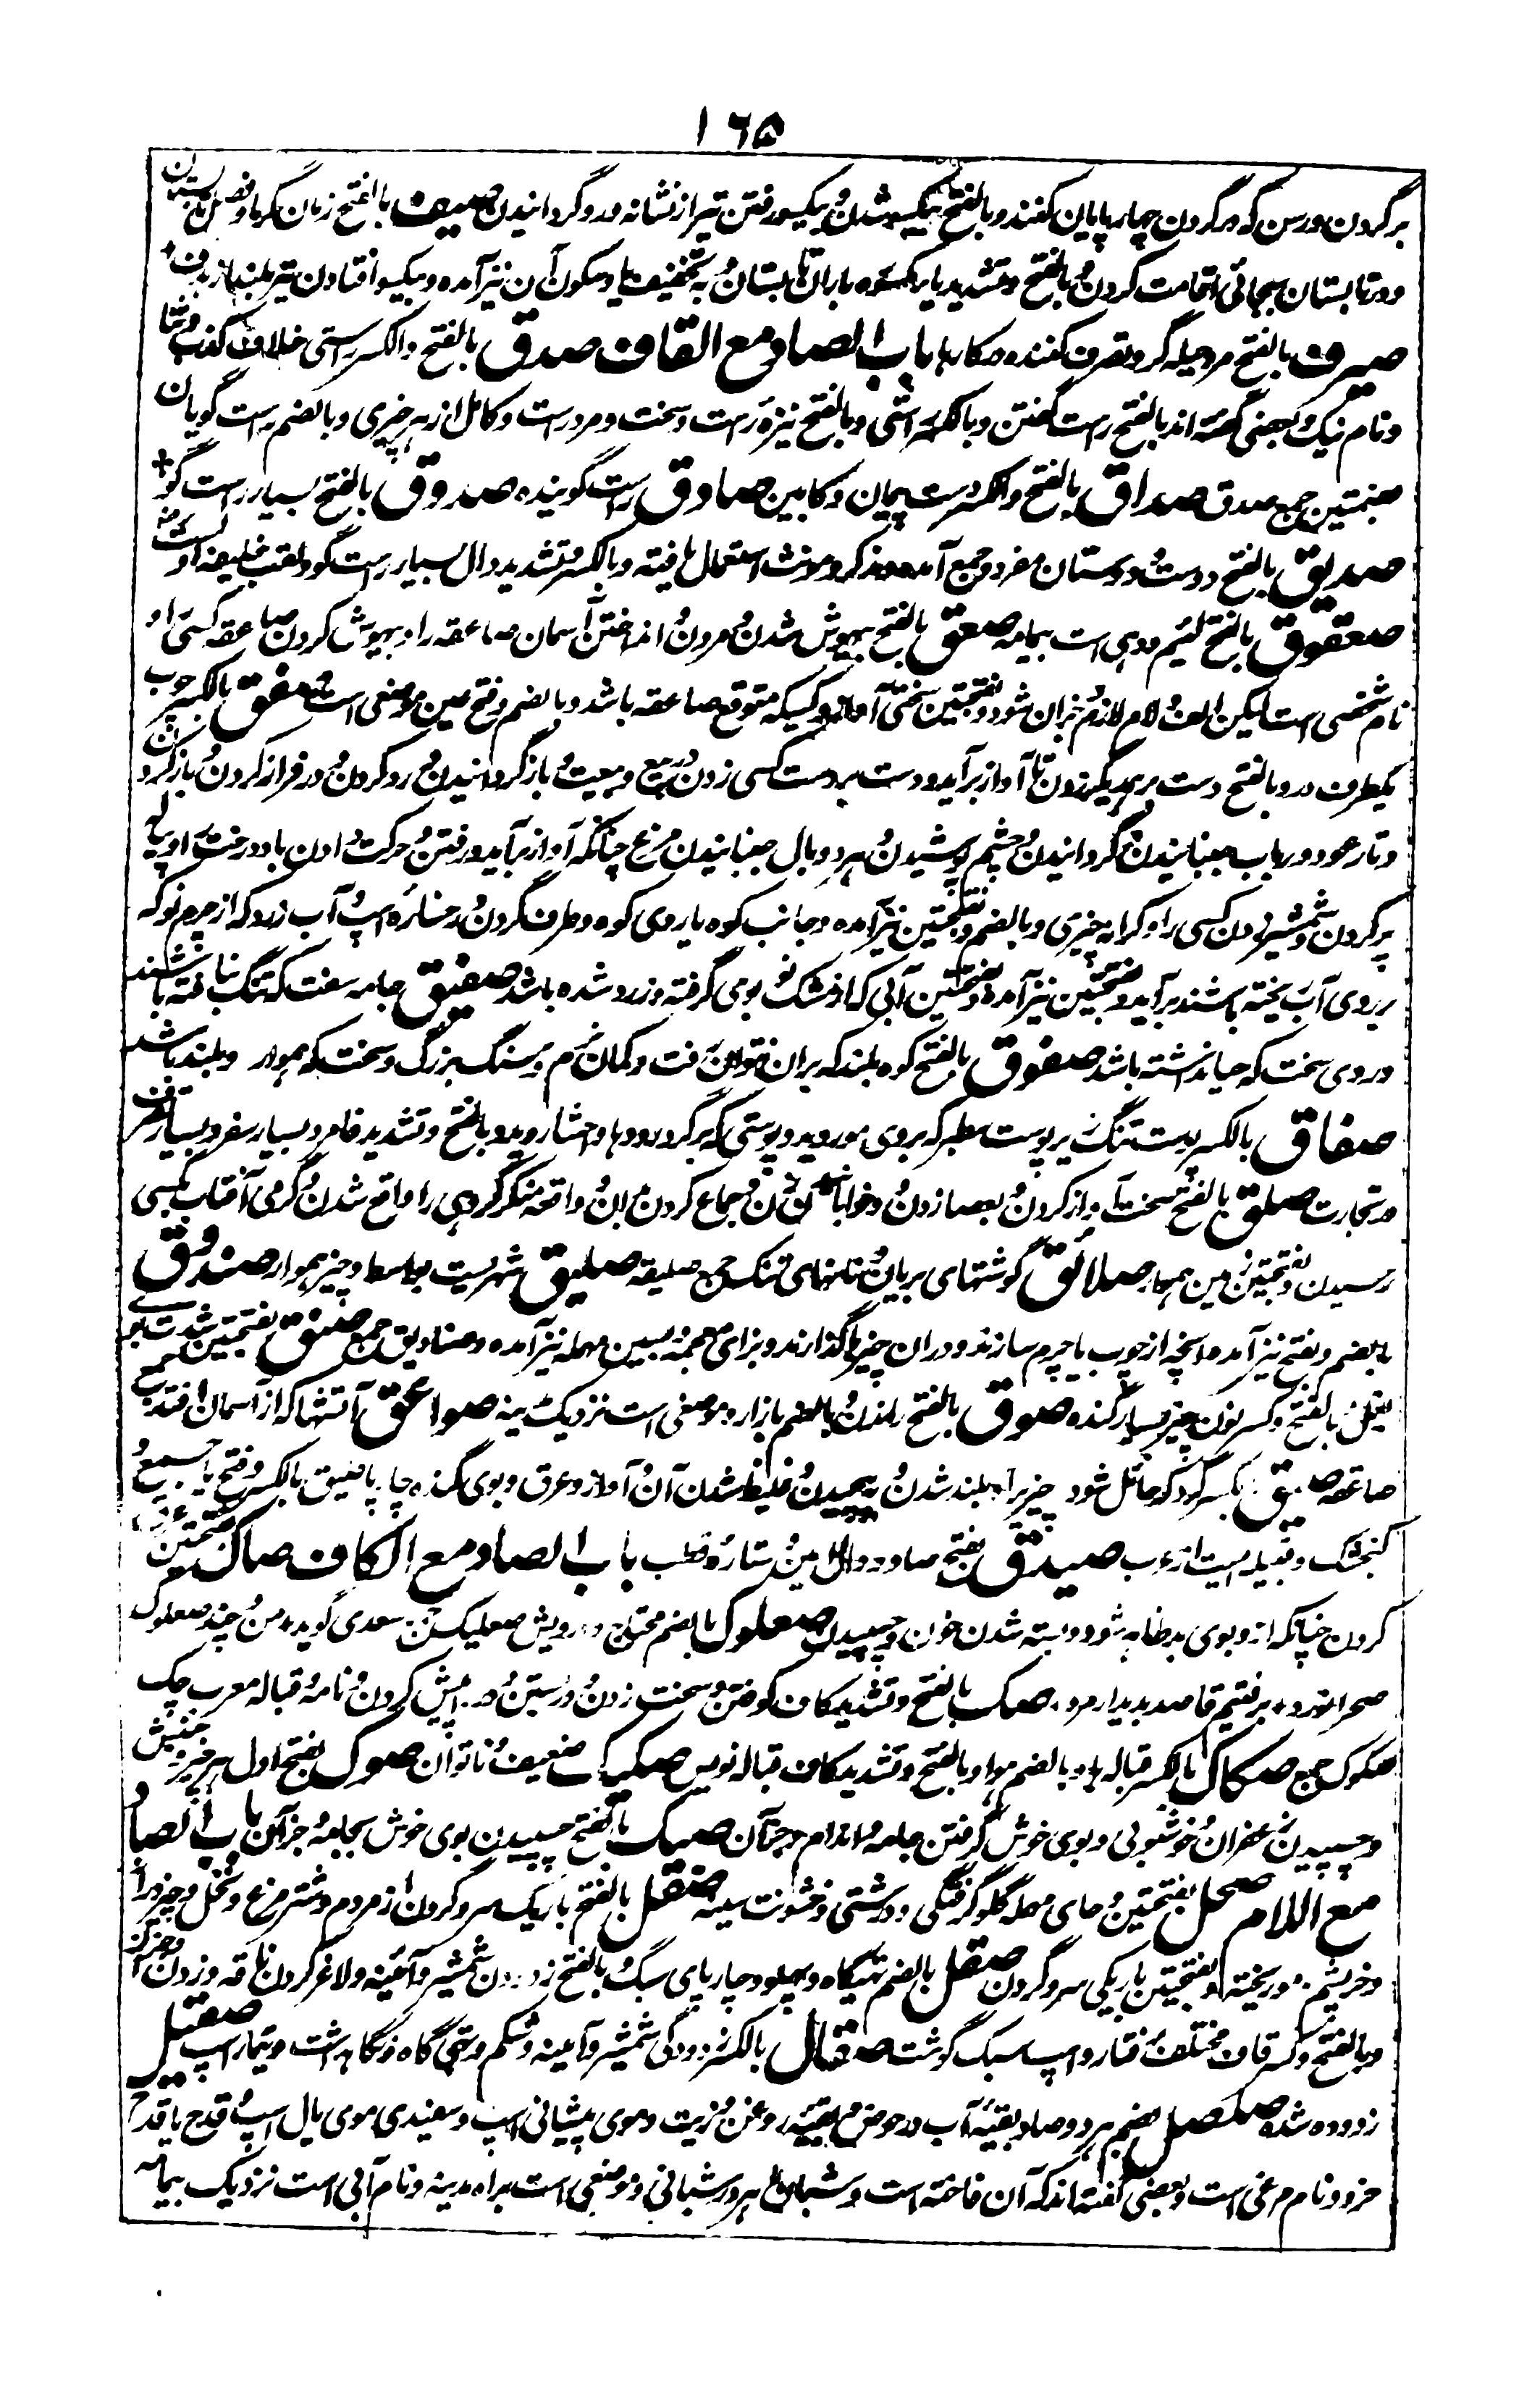 ۱۶۵
بر گردن و رسن که در گردن چهارپایان کنند و بالفتح یکسو شدن و یکسو رفتن تیر از نشانه و رو گردانیدن صیف بالفتح زمان گرما و فصل تابستان
و در تابستان بجائی اقامت کردن و بالفتح و تشدید یا باران تابستان و به تخفیف یا و سکون آن نیز آمده و بیکسو افتادن تیر
صیرف بالفتح مرد حیله گر و تصرف کننده در کارها باب الصاد مع القاف صدق بالفتح والکسر راستی خلاف کذب
و نام نیک و بعضی گفته اند بالفتح راست گفتن و بالکسر راستی و بالفتح نیزه راست و سخت و مرد راست و کامل از هر چیزی و بالضم راست گویان
بضمتین جمع صدق صداق بالفتح والکسر دست پیمان و کابین صادق راست گوینده صدوق بالفتح بسیار راست گو
صدیق بالفتح دوست و دوستان مفرد و جمع آمده و مذکر و مونث استعمال یافته و بالکسر و تشدید دال بسیار راست گو و لقب خلیفه اول
صعقوق بالفتح لئیم و دهی است بیمامه صعق بالفتح بیهوش شدن و مردن و انداختن آسمان صاعقه را و بیهوش کردن صاعقه کسی را و
نام شخصی است لیکن الف و لام لازم خبر آن شود و بفتحتین سختی آواز و کسیکه متوقع صاعقه باشد و بالضم و فتح عین موضعی است صفق بالکسر چوب
یکطرف در و بالفتح دست بر یکدیگر زدن تا آواز برآید و دست بر دست کسی زدن در بیع و بیعت و باز گردانیدن و رو کردن و در فراز کردن و باز کردن
و تار عود و رباب جنبانیدن و گردانیدن چشم و پوشیدن و هر دو بال جنبانیدن مرغ چنانکه آواز برآید و رفتن و حرکت دادن باد درخت را و پیاله
پر کردن و شمشیر زدن کسی را و کرانه چیزی و بالضم و بفتحتین نیز آمده و جانب کوه یا روی کوه و طرف گردن و رخساره اسپ و آب زرد که از چرم نو که
بر روی آب ریخته باشند برآید و بفتحتین نیز آمده و بفتحتین آبی که از مشک نو بوی گرفته و زرد شده باشد صفیق جامه سفت که تنگ بافته باشند
و روی سخت که حیا نداشته باشد صفوق بالفتح کوه بلند که بران نتوان رفت و کمان نرم و سنگ بزرگ و سخت که هموار و بلند باشد
صفاق بالکسر پوست تنک زیر پوست سطبر که بروی مو روید و پوستی که بر گرد روده و احشا روید و بالفتح و تشدید فا مرد بسیار سفر و بسیار
در تجارت صلق بالفتح سخت آواز کردن و بعصا زدن و خوابانیدن زن و جماع کردن بران و واقعه منکر گروهی را واقع شدن و گرمی آفتاب بکسی
رسیدن و بفتحتین زمین هموار صلائق گوشتهای بریان و نانهای تنک جمع صلیقه صلیق شهریست بواسط و چیز هموار صندوق
بالضم و بفتح نیز آمده آنچه از چوب یا چرم سازند و دران چیزها گذارند و بزای معجمه و بسین مهمله نیز آمده و صنادیق جمع صنق بفتحتین شدت
بغل و بالفتح و کسر نون چیز بسیار گنده صوق بالفتح راندن و بالضم بازار و موضعی است نزدیک مدینه صواعق آتشها که از آسمان افتد جمع
صاعقه صیق بکسر گرد که حائل شود و چیز برآمد بلند شدن و پیچیدن و غلیظ شدن آن و آواز و عرق و بوی گنده چارپا صیق بالکسر و فتح یا جمع و
کنجشک و قبیله ایست از عرب صیدق بفتح صاد و دال امین و ستاره قطب باب الصاد مع الکاف صاک بفتحتین عرق
کردن چنانکه ازو بوی بد ظاهر شود و بسته شدن خون و چسپیدن صعلوک بالضم محتاج و درویش صعالیک جمع سعدی گوید من و چند صعلوک
صحرا نورد برفتیم قاصد بدیدار مرد صک بالفتح و تشدید کاف کوفتن و سخت زدن و در بستن و در پیش کردن و نامه و قباله معرب چک
صکوک جمع صکاک بالکسر قباله ها و بالضم هوا و بالفتح و تشدید کاف قباله نویس صکیک ضعیف و ناتوان صوک بفتح اول هر چیز و جنبش
و چسپیدن زعفران و خوشبوئی و بوی خوش گرفتن جامه و اندام و جز آن صیک بالفتح چسپیدن بوی خوش بجامه و جز آن باب الصاد
مع اللام صحل بفتحتین و حای مهمله گلو گرفتگی و درشتی و خشونت سینه صعل بالفتح باریک سر و گردن از مردم و شترمرغ و نخل و چیز دراز
و خر پشم ریخته و بفتحتین باریکی سر و گردن صقل بالضم تهیگاه و پهلو و چارپای سبک و بالفتح زدودن شمشیر و آئینه و لاغر کردن ناقه و زدن
و بالفتح و کسر قاف مختلف رفتار و اسپ سبک گوشت صقال بالکسر زدودگی شمشیر و آئینه و شکم و تهی گاه و نگاهداشت و تیمار اسپ صقیل
زدوده شده صلصل بضم هر دو صاد بقیه آب در حوض و بقیه روغن و زیت و موی پیشانی اسپ و سفیدی موی یال اسپ و قدح یا قدح
خرد و نام مرغی است و بعضی گفته اند که آن فاخته است و شبان ماهر در شبانی و موضعی است براه مدینه و نام آبی است نزدیک بیمامه